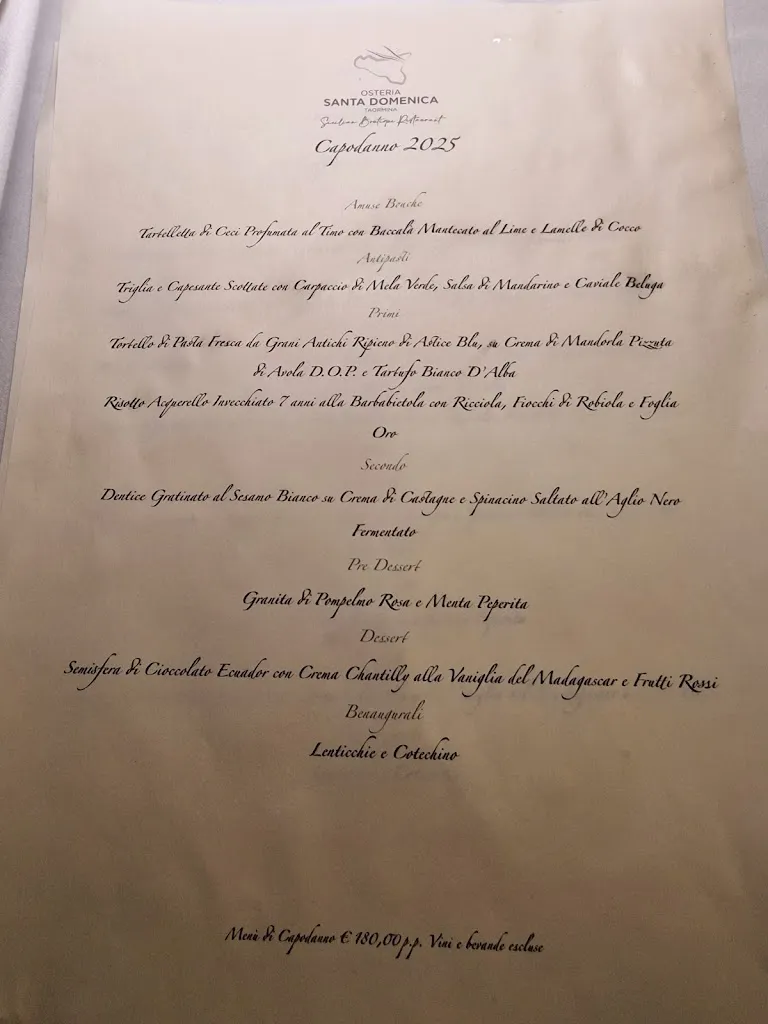 OSTERIA
SANTA DOMENICA
TAORMINA
Sicilian Boutique Restaurant
Capodanno 2025
Amuse Bouche
Tartelletta di Ceci Profumata al Timo con Baccalà Mantecato al Lime e Lamelle di Cocco
Antipasti
Triglia e Capesante Scottate con Carpaccio di Mela Verde, Salsa di Mandarino e Caviale Beluga
Primi
Tortello di Pasta Fresca da Grani Antichi Ripieno di Astice Blu, su Crema di Mandorla Pizzuta
di Avola D.O.P. e Tartufo Bianco D'Alba
Risotto Acquerello Invecchiato 7 anni alla Barbabietola con Ricciola, Fiocchi di Robiola e Foglia
Oro
Secondo
Dentice Gratinato al Sesamo Bianco su Crema di Castagne e Spinacino Saltato all'Aglio Nero
Fermentato
Pre Dessert
Granita di Pompelmo Rosa e Menta Peperita
Dessert
Semisfera di Cioccolato Ecuador con Crema Chantilly alla Vaniglia del Madagascar e Frutti Rossi
Benaugurali
Lenticchie e Cotechino
Menù di Capodanno € 180,00 p.p. Vini e bevande escluse